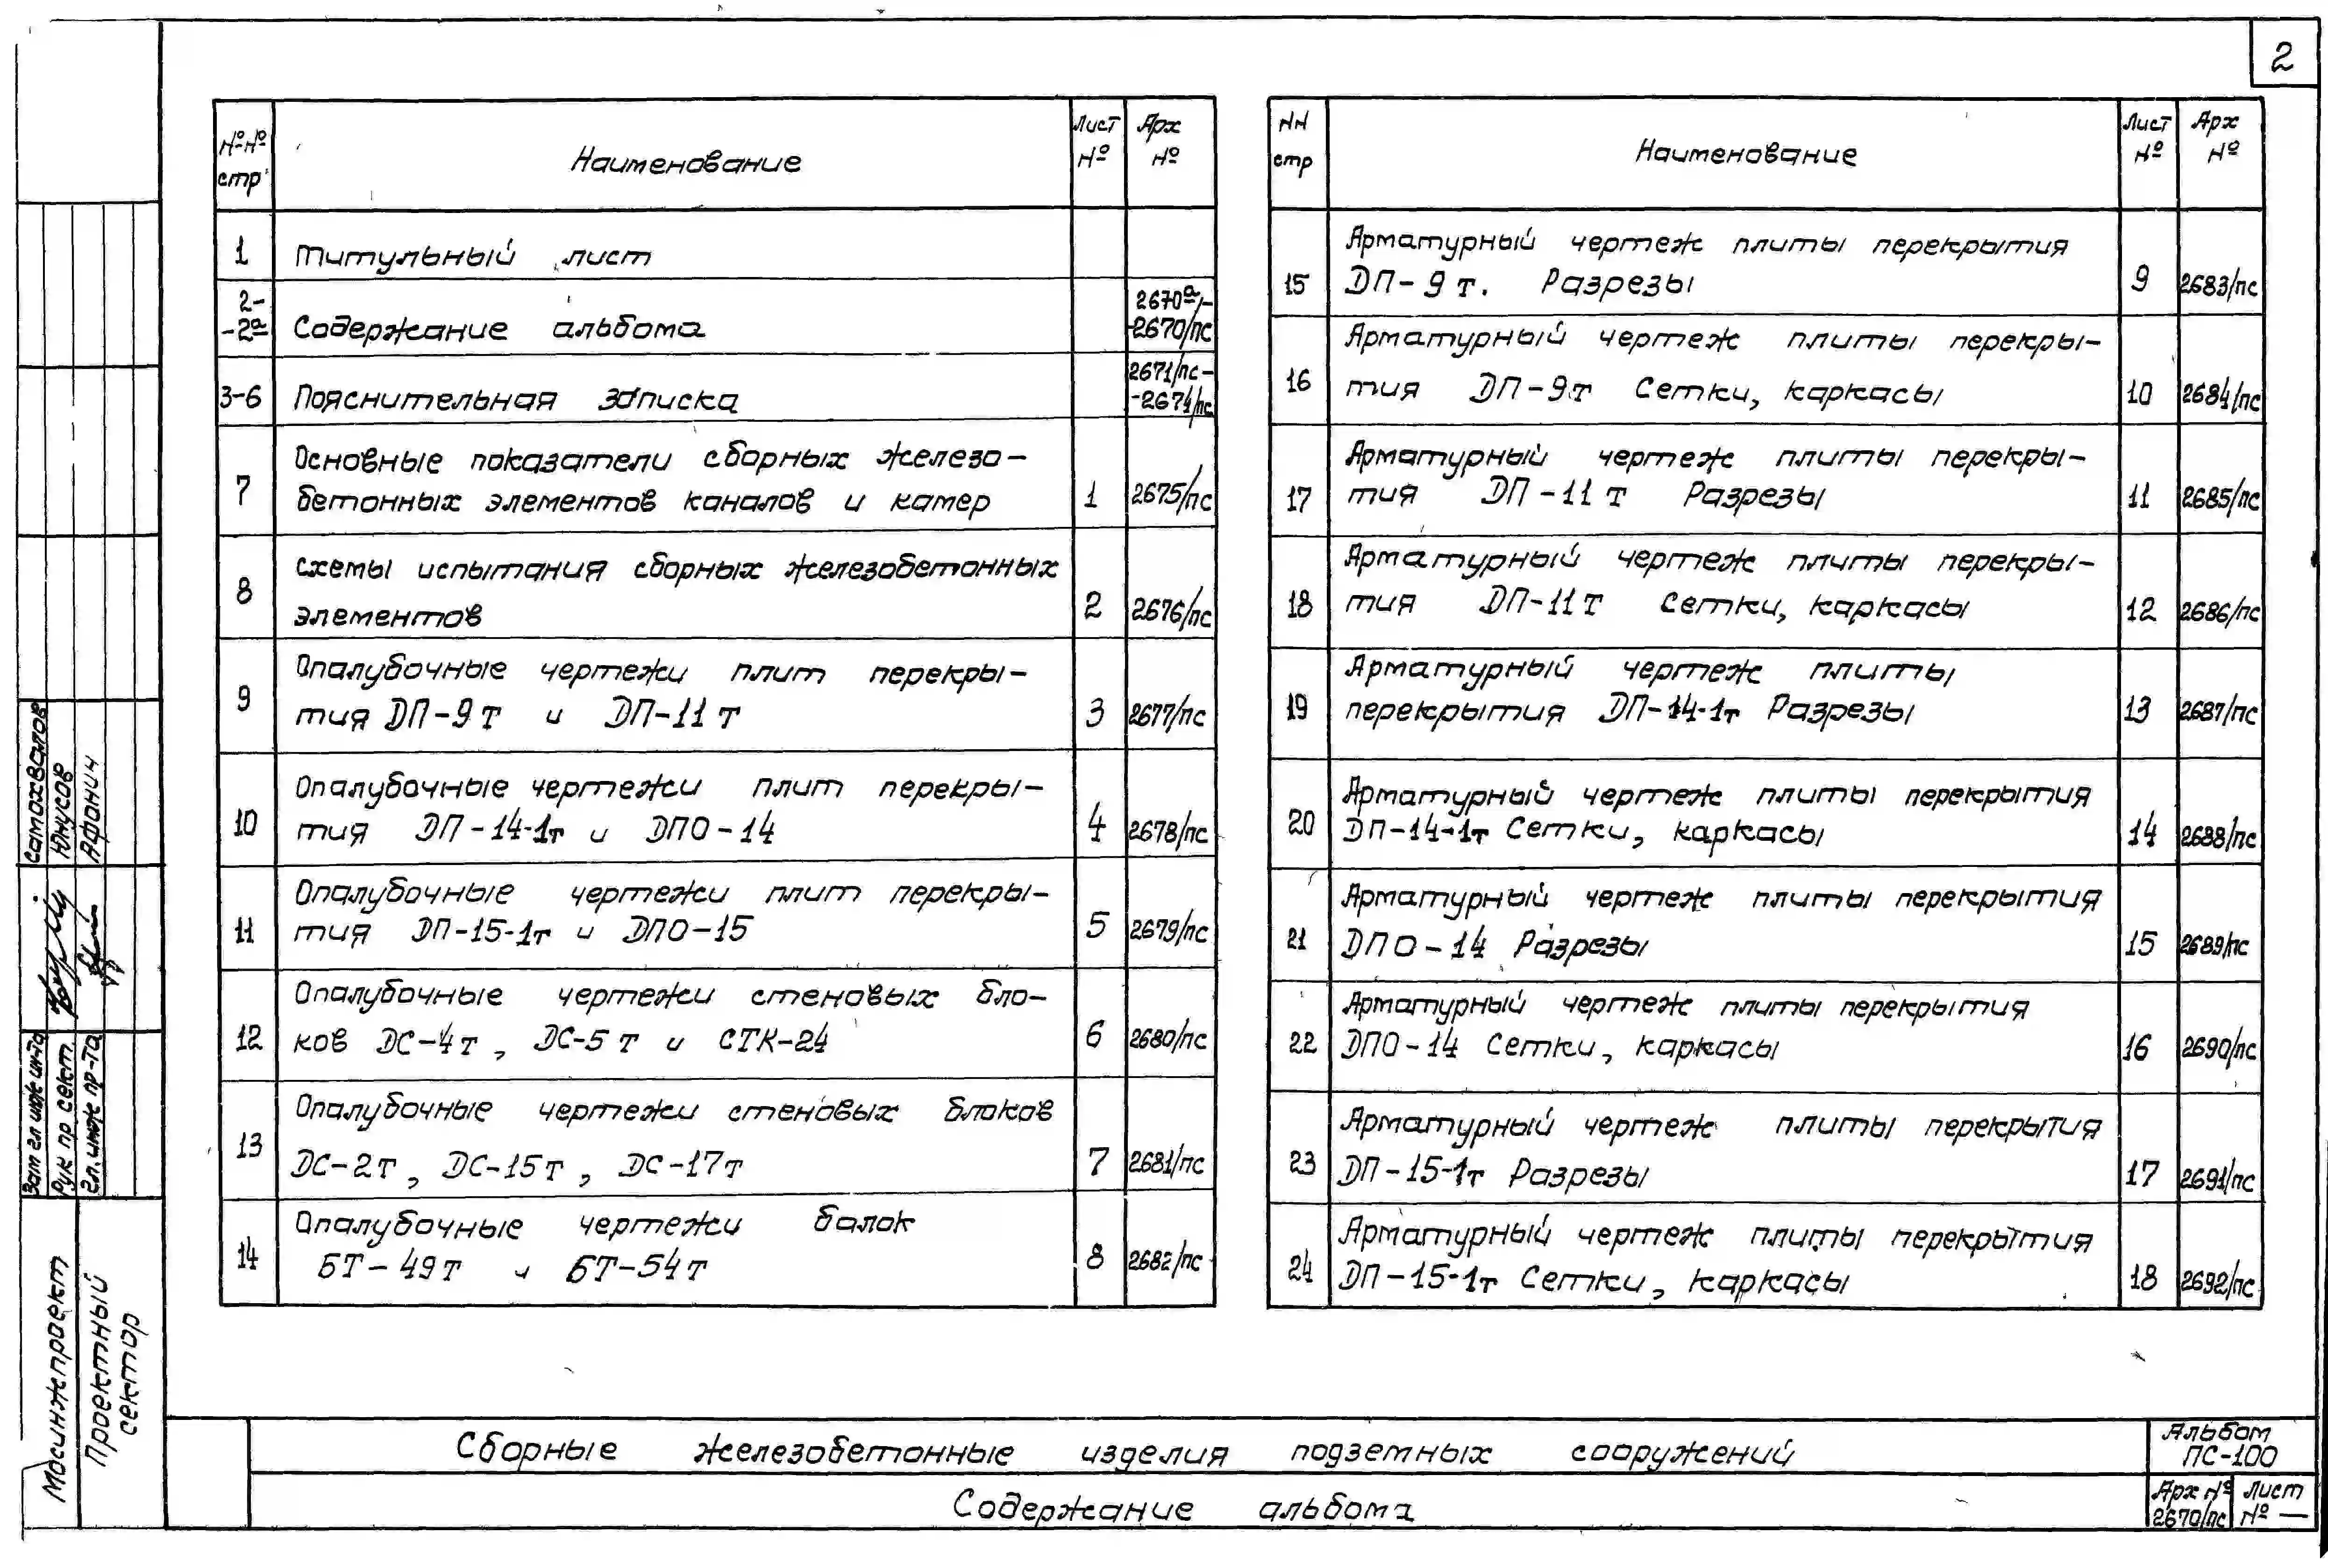 2
№№ стр
Наименование
Лист №
Арх №
1
Титульный лист
2-
-2а
Содержание альбома
2670а/-
-2670/пс
3-6
Пояснительная записка
2671/пс-
-2674/пс
7
Основные показатели сборных железо-
бетонных элементов каналов и камер
1
2675/пс
8
Схемы испытания сборных железобетонных
элементов
2
2676/пс
9
Опалубочные чертежи плит перекры-
тия ДП-9т и ДП-11т
3
2677/пс
10
Опалубочные чертежи плит перекры-
тия ДП-14-1т и ДПО-14
4
2678/пс
11
Опалубочные чертежи плит перекры-
тия ДП-15-1т и ДПО-15
5
2679/пс
12
Опалубочные чертежи стеновых бло-
ков ДС-4т, ДС-5т и СТК-24
6
2680/пс
13
Опалубочные чертежи стеновых блоков
ДС-2т, ДС-15т, ДС-17т
7
2681/пс
14
Опалубочные чертежи балок
БТ-49т и БТ-54т
8
2682/пс
НН стр
Наименование
Лист №
Арх №
15
Арматурный чертеж плиты перекрытия
ДП-9т. Разрезы
9
2683/пс
16
Арматурный чертеж плиты перекры-
тия ДП-9т Сетки, каркасы
10
2684/пс
17
Арматурный чертеж плиты перекры-
тия ДП-11т Разрезы
11
2685/пс
18
Арматурный чертеж плиты перекры-
тия ДП-11т Сетки, каркасы
12
2686/пс
19
Арматурный чертеж плиты
перекрытия ДП-14-1т Разрезы
13
2687/пс
20
Арматурный чертеж плиты перекрытия
ДП-14-1т Сетки, каркасы
14
2688/пс
21
Арматурный чертеж плиты перекрытия
ДПО-14 Разрезы
15
2689/пс
22
Арматурный чертеж плиты перекрытия
ДПО-14 Сетки, каркасы
16
2690/пс
23
Арматурный чертеж плиты перекрытия
ДП-15-1т Разрезы
17
2691/пс
24
Арматурный чертеж плиты перекрытия
ДП-15-1т Сетки, каркасы
18
2692/пс
Самохвалов
Юнусов
Афонич
Зам гл инж ин-та
Рук пр сект.
Гл. инж пр-та
Мосинжпроект
Проектный
сектор
Сборные железобетонные изделия подземных сооружений
Содержание альбома
Альбом
ПС-100
Арх №
2670/пс
Лист
№ —